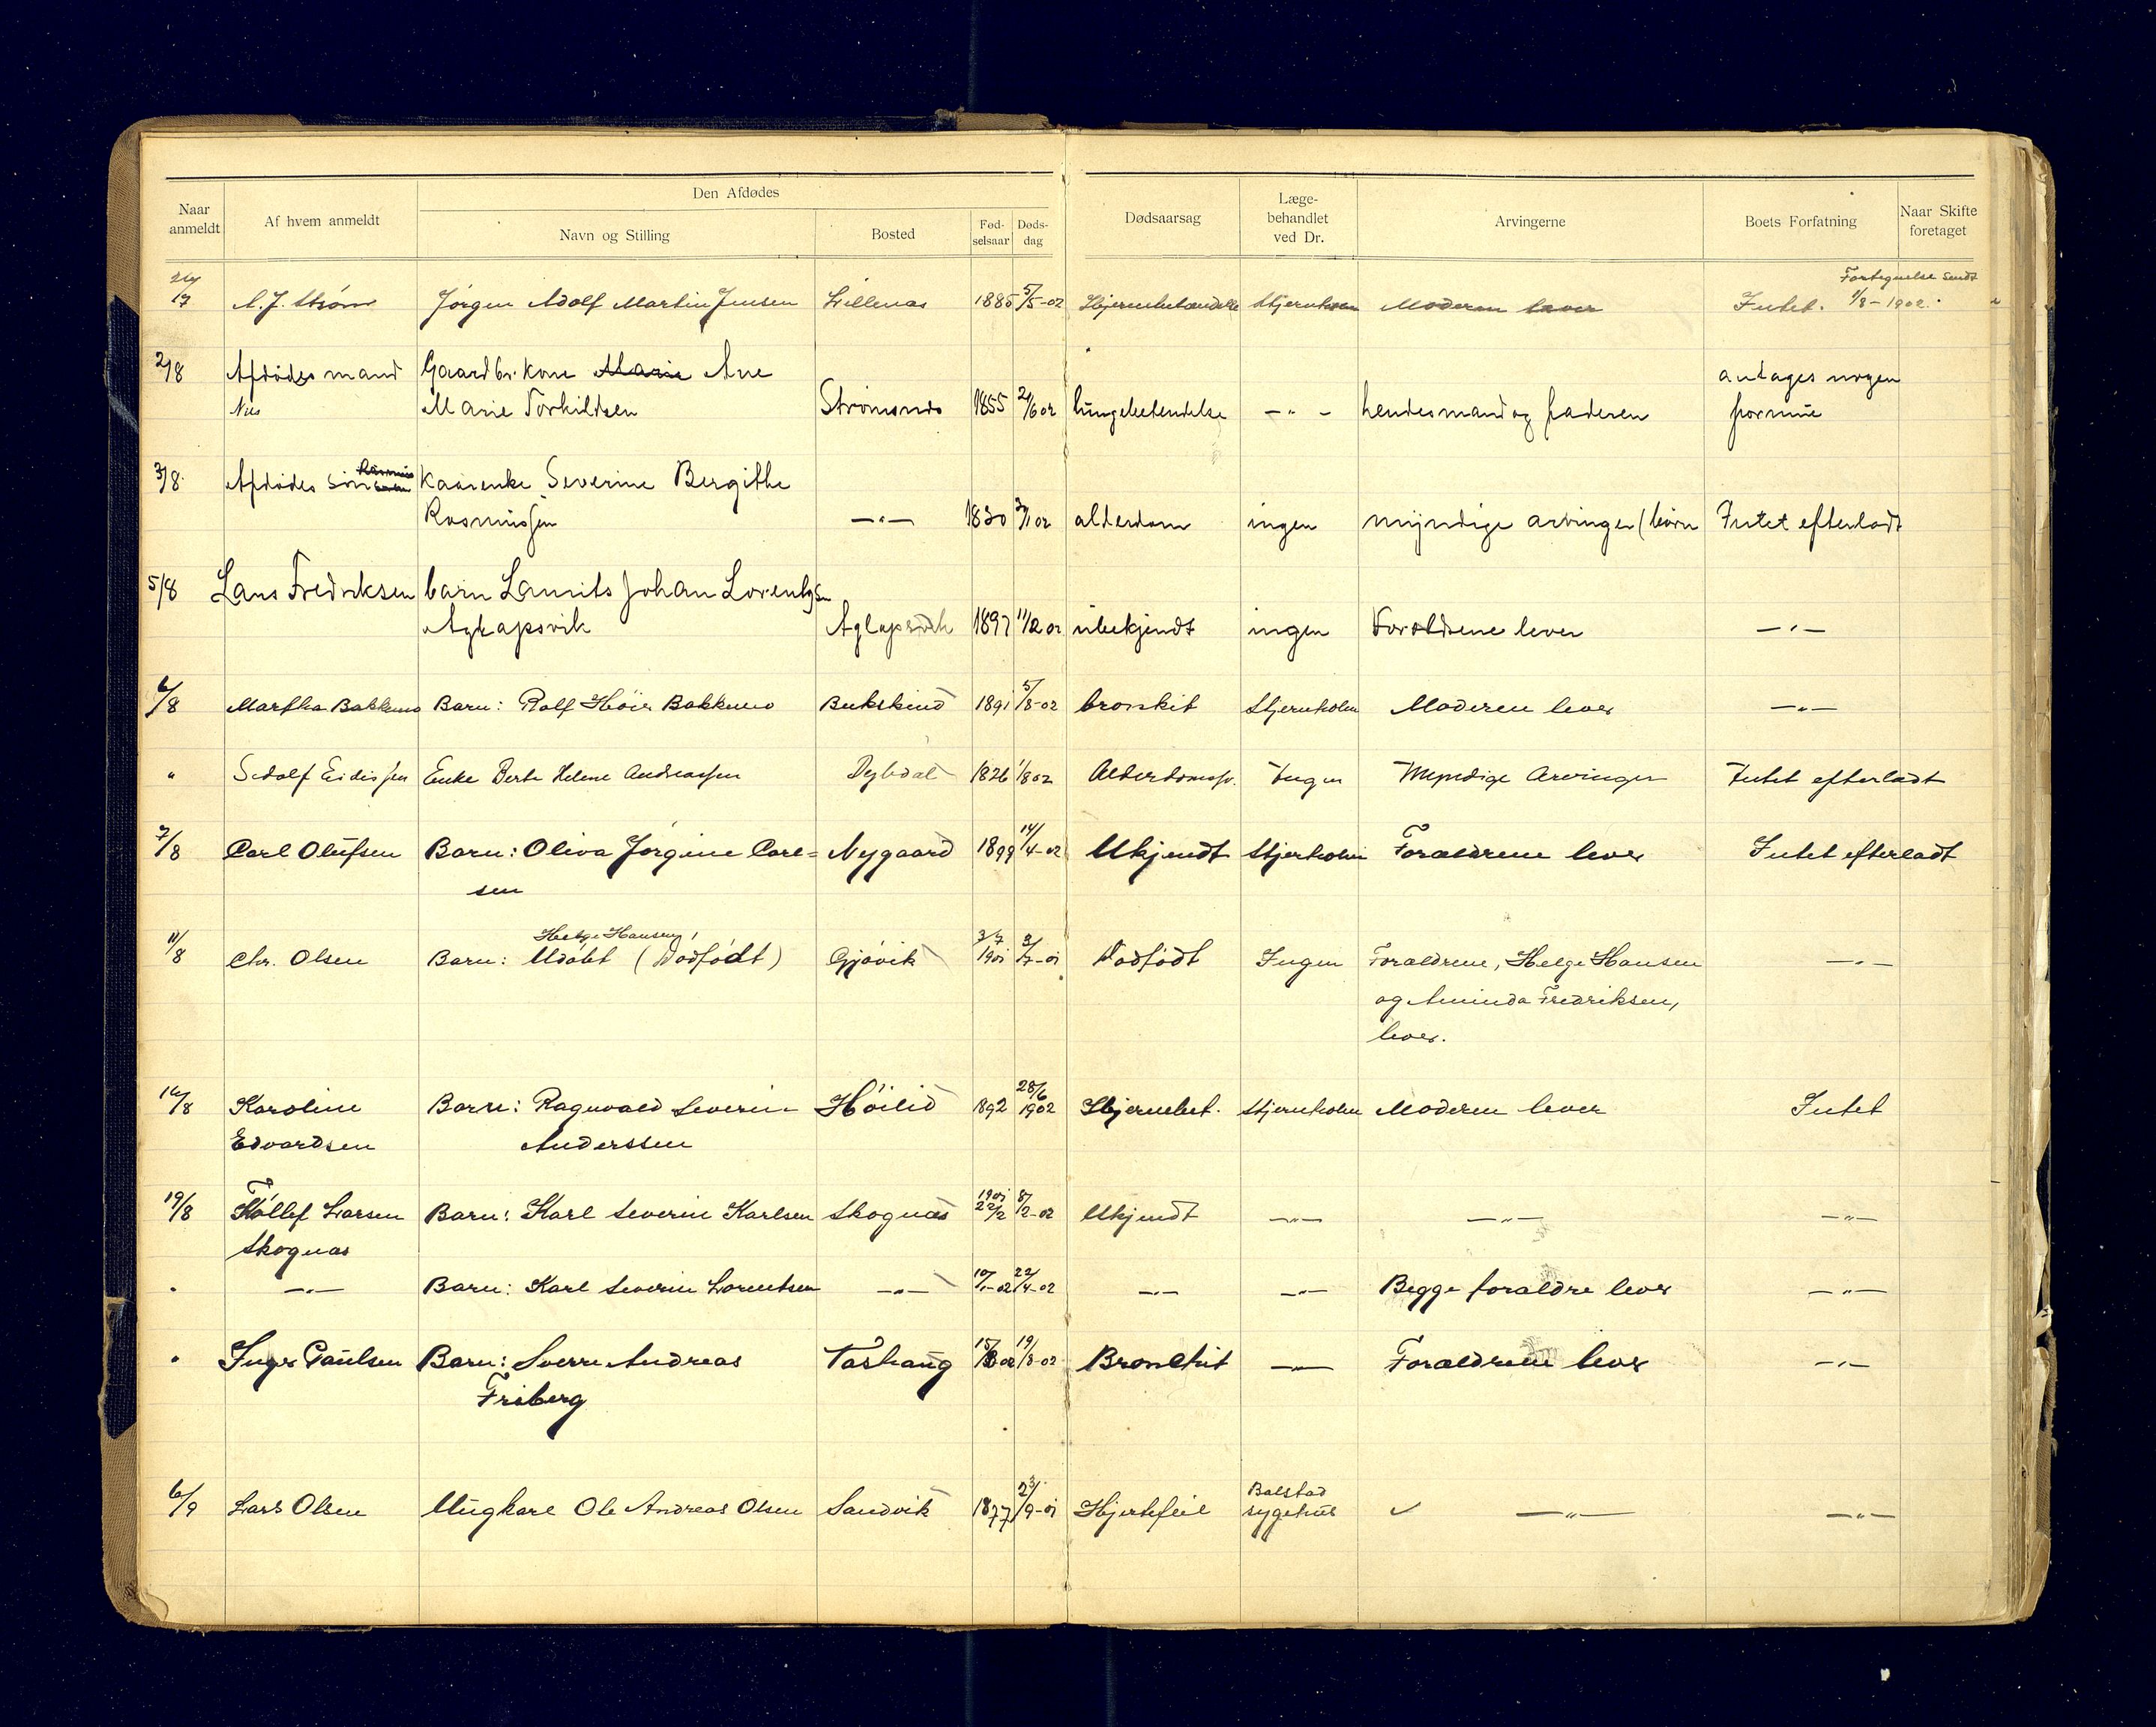 Den Afdødes
Naar anmeldt
Af hvem anmeldt
Navn og Stilling
Bosted
Fød-selsaar
Døds-dag
Dødsaarsag
Læge-behandlet ved Dr.
Arvingerne
Boets Forfatning
Naar Skifte foretaget
Fortegnelse sendt
A. J. Strøm Jørgen Adolf Martin Jensen Lillenas 1885 5/5-02 Hjernebetændelse Stjernholm Moderen lever Intet. 1/8-1902.
2/8 Afdødes mand Gaardbr. kone Marie Ane antages nogen
Nils Marie Torkildsen Strømsnes 1855 2/6 02 lungebetendelse -"- hendes mand og faderen formue
3/8 Afdødes søn Kaarenke Severine Bergithe
Rasmussen -"- 1830 02 alderdom ingen myndige arvinger (børn Intet efterladt
5/8 Lars Fredriksen barn Laurits Johan Lorentzsen
Aglapsvik Aglapsvik 1897 11/2 02 ubekjendt ingen Forældrene lever -"-
6/8 Martha Bakkemo Barn: Rolf Høier Bakkemo Bukskind 1891 5/8-02 bronkit Stjernholm Moderen lever -"-
" Sedolf Eidissen Enke Berte Helene Andreassen Dybdal 1826 1/8 02 Alderdomssv. Ingen Myndige Arvinger Intet efterladt
7/8 Carl Olufsen Barn: Oliva Jørgine Carl= Nygaard 1899 14/4-02 Ukjendt Stjernholm Forældrene lever Intet efterladt
sen
Helge Hansens
11/8 Chr. Olsen Barn: Udøbt (Dødfødt) Gjøvik 3/7 1901 3/7-01 Dødfødt Ingen Forældrene, Helge Hansen -"-
og Aminda Fredriksen,
lever.
16/8 Karoline Barn: Ragnvald Severin Høilid 1892 28/6 1902 Hjernebet. Stjernholm Moderen lever Intet
Edvardsen Anderssen
19/8 Tollef Larsen Barn: Karl Severin Karlsen Skognæs 1901 22/2 8/2-02 Ukjendt -"- -"- -"-
Skognæs
" -"- Barn: Karl Severin Lorentsen -"- 10/1-02 22/4-02 -"- -"- Begge forældre lever -"-
" Inger Paulsen Barn: Sverre Andreas Vashaug 02 19/8-02 Bronchit -"- Forældrene lever -"-
Friberg
6/9 Lars Olsen Ungkarl Ole Andreas Olsen Sandvik 1877 23/9-01 Hjertefeil Balstad sygehus -"- -"-